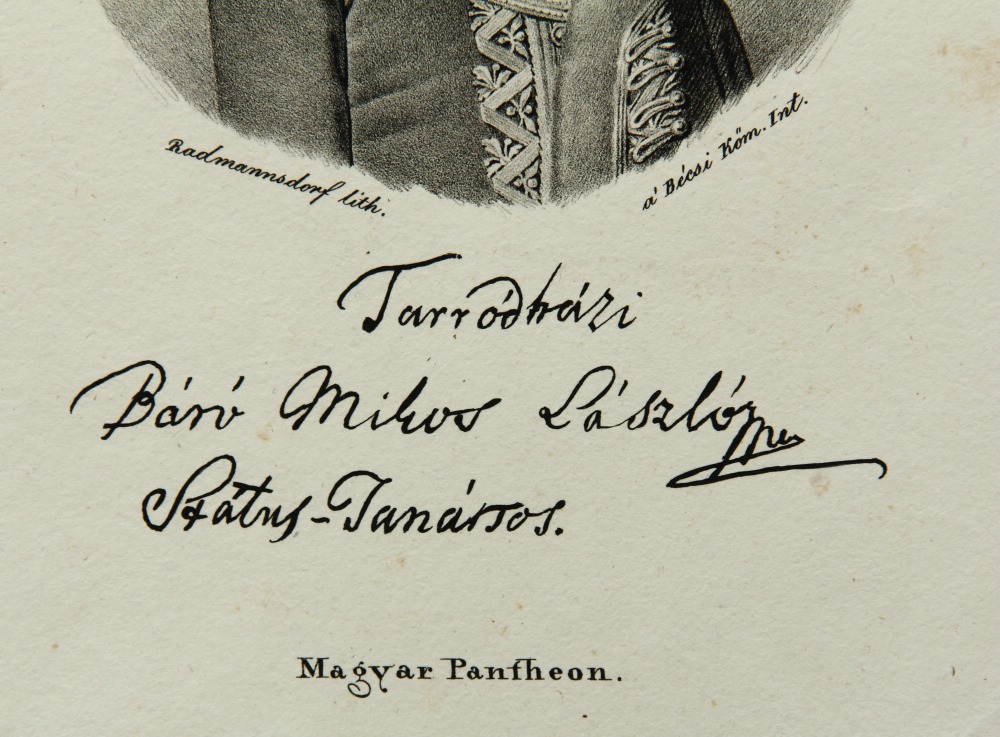 Radmannsdorf lith.
a' Bécsi Kőm. Int.
Tarródházi
Báró Mikos László
Státus-Tanátsos.
Magyar Pantheon.